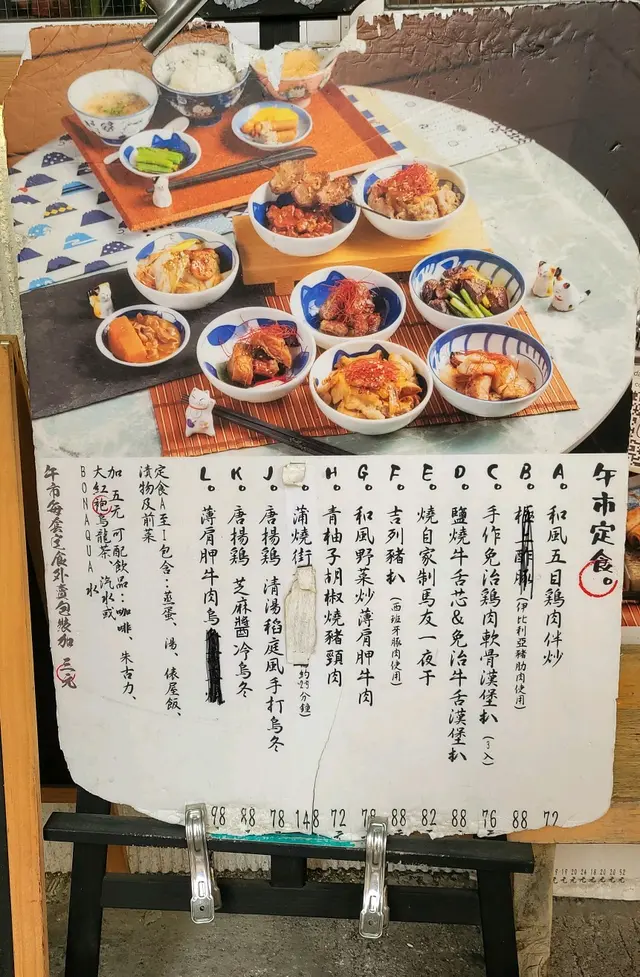 午市定食。
A。 和風五目鷄肉伴炒 72
B。 極上酢豚(伊比利亞豬肋肉使用) 88
C。 手作免治鷄肉軟骨漢堡扒(3入) 76
D。 鹽燒牛舌芯&免治牛舌漢堡扒 88
E。 燒自家制馬友一夜干 82
F。 吉列豬扒(西班牙豚肉使用) 88
G。 和風野菜炒薄肩胛牛肉 78
H。 青柚子胡椒燒豬頸肉 72
蒲燒 (約25分鐘) 148
J。 唐揚鷄 清湯稻庭風手打烏冬 78
K。 唐揚鷄 芝麻醬冷烏冬 88
L。 薄肩胛牛肉烏 98
定食A至I包含:蒸蛋、湯、俵屋飯、
漬物及前菜
加五元可配飲品:咖啡、朱古力、
大紅袍烏龍茶、汽水或
BONAQUA水
午市每套定食外賣包裝加三元